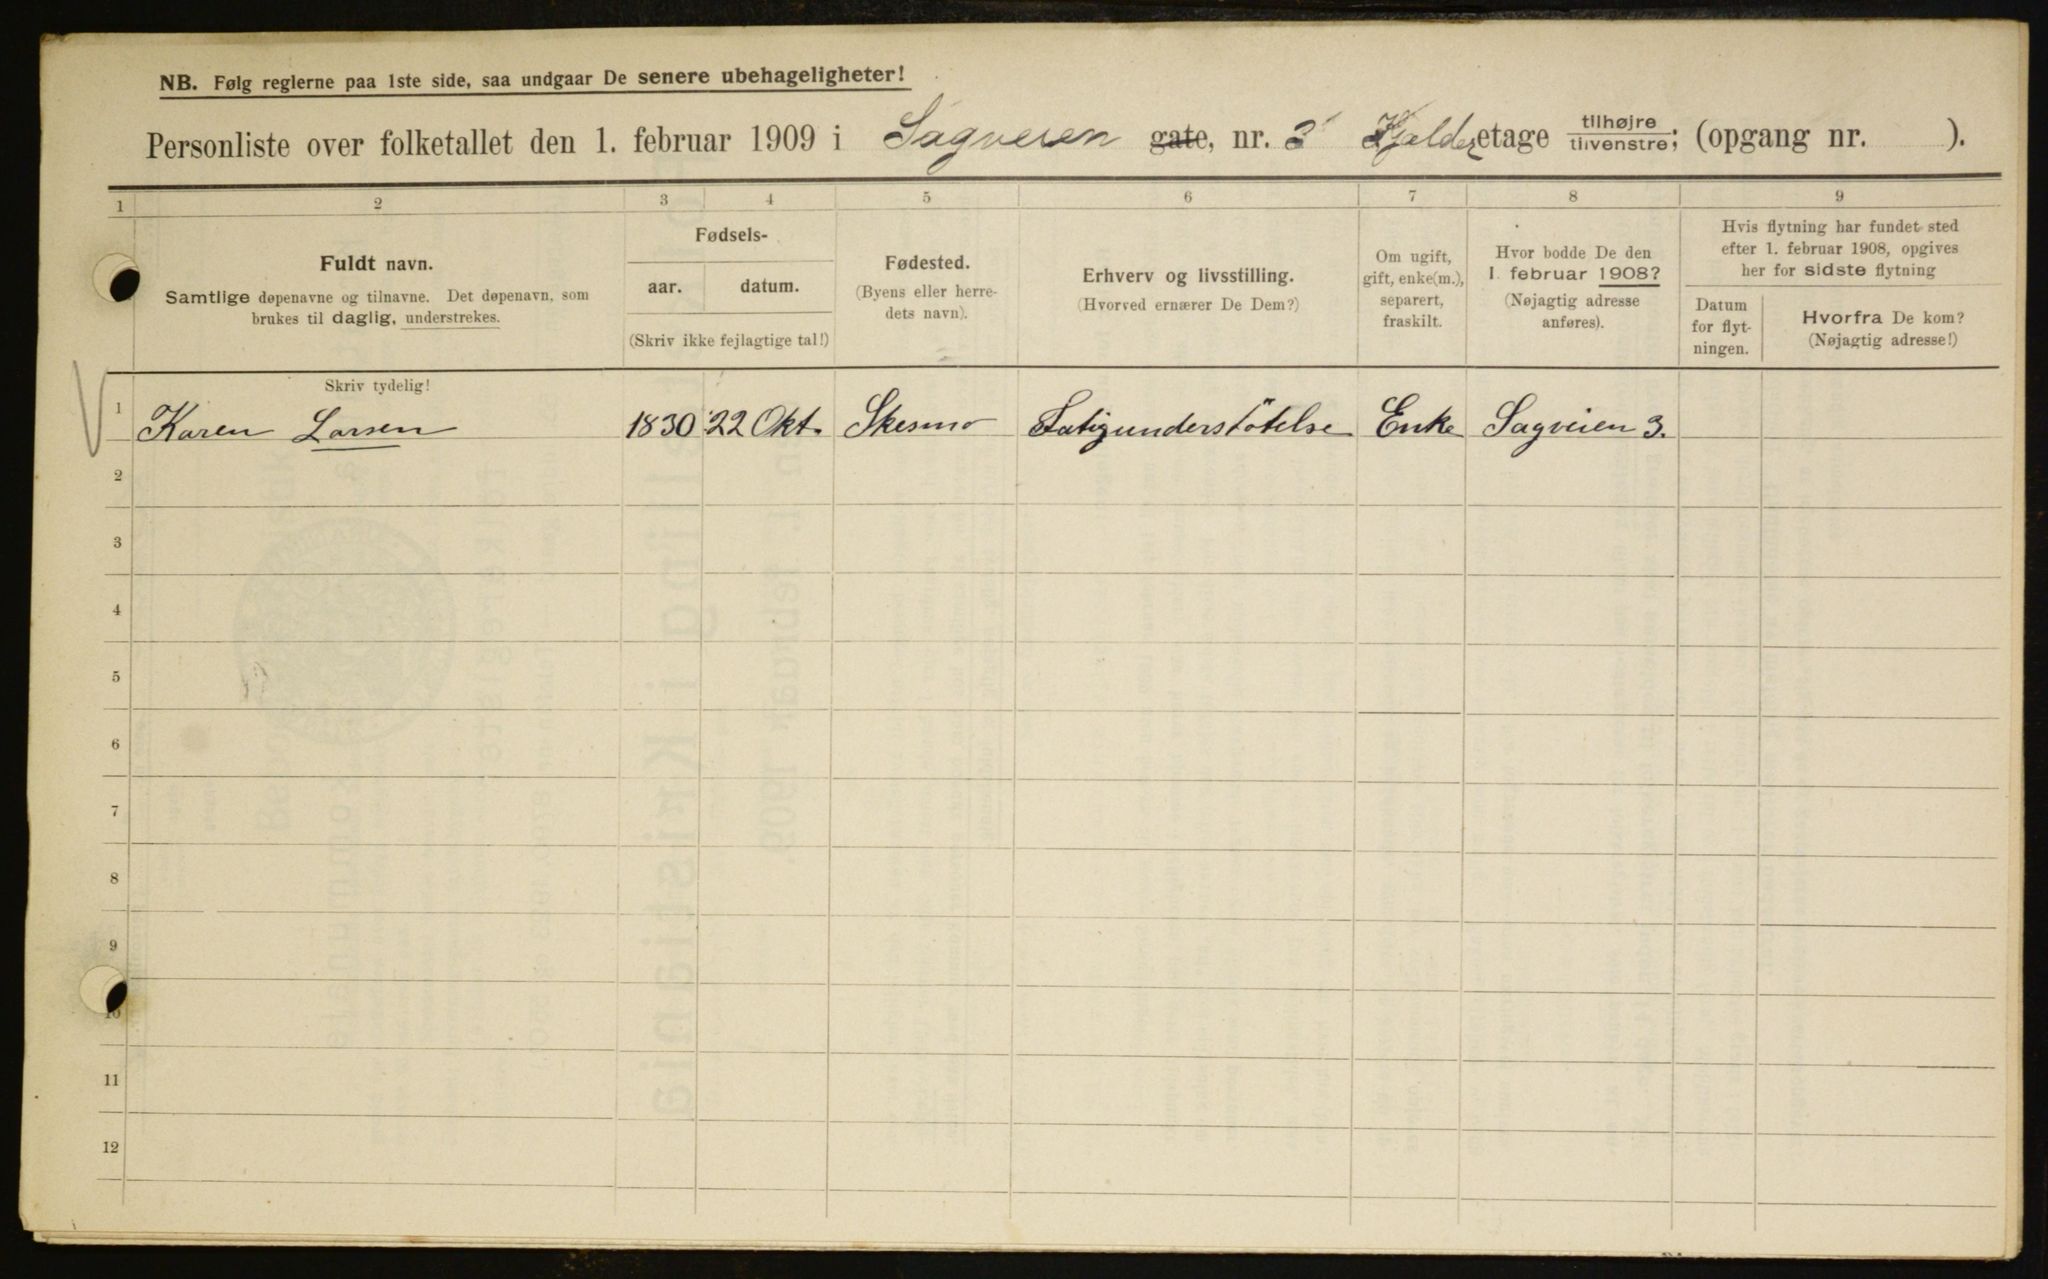 NB. Følg reglerne paa 1ste side, saa undgaar De senere ubehageligheter!
Personliste over folketallet den 1. februar 1909 i Sagveien gate, nr. 3 Kjelderetage tilhøjre tilvenstre; (opgang nr. ).
1 2 3 4 5 6 7 8 9
Fuldt navn.
Samtlige døpenavne og tilnavne. Det døpenavn, som
brukes til daglig, understrekes.
Fødsels-
aar. datum.
(Skriv ikke fejlagtige tal!)
Fødested.
(Byens eller herre-
dets navn).
Erhverv og livsstilling.
(Hvorved ernærer De Dem?)
Om ugift,
gift, enke(m.),
separert,
fraskilt.
Hvor bodde De den
1. februar 1908?
(Nøjagtig adresse
anføres).
Hvis flytning har fundet sted
efter 1. februar 1908, opgives
her for sidste flytning
Datum
for flyt-
ningen.
Hvorfra De kom?
(Nøjagtig adresse!)
Skriv tydelig!
1 Karen Larsen 1830 22 Okt. Skesmo Fatigunderstötelse Enke Sagveien 3.
2
3
4
5
6
7
8
9
10
11
12